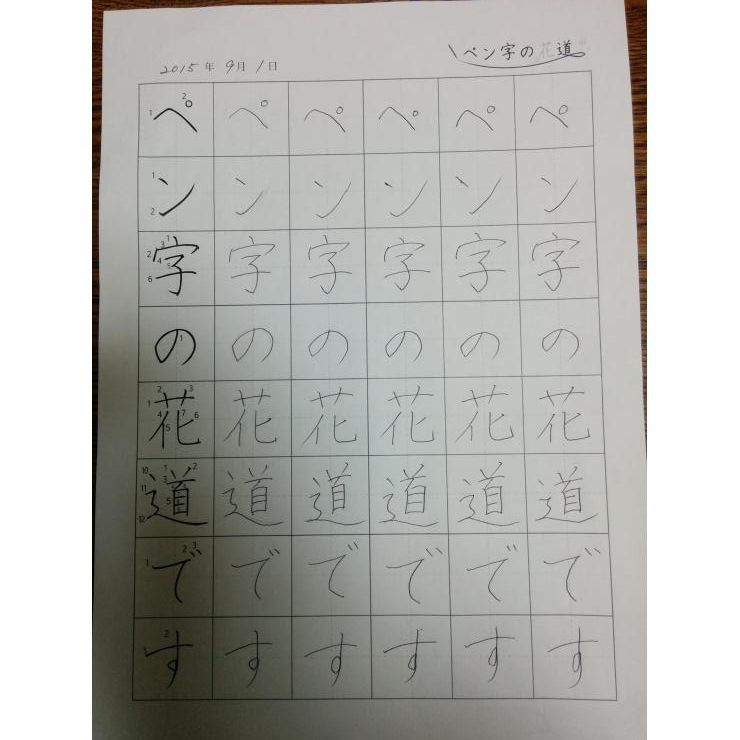 \ペン字の花道
2015年9月1日
ペ ペ ペ ペ ペ ペ
ン ン ン ン ン ン
字 字 字 字 字 字
の の の の の の
花 花 花 花 花 花
道 道 道 道 道 道
で で で で で で
す す す す す す